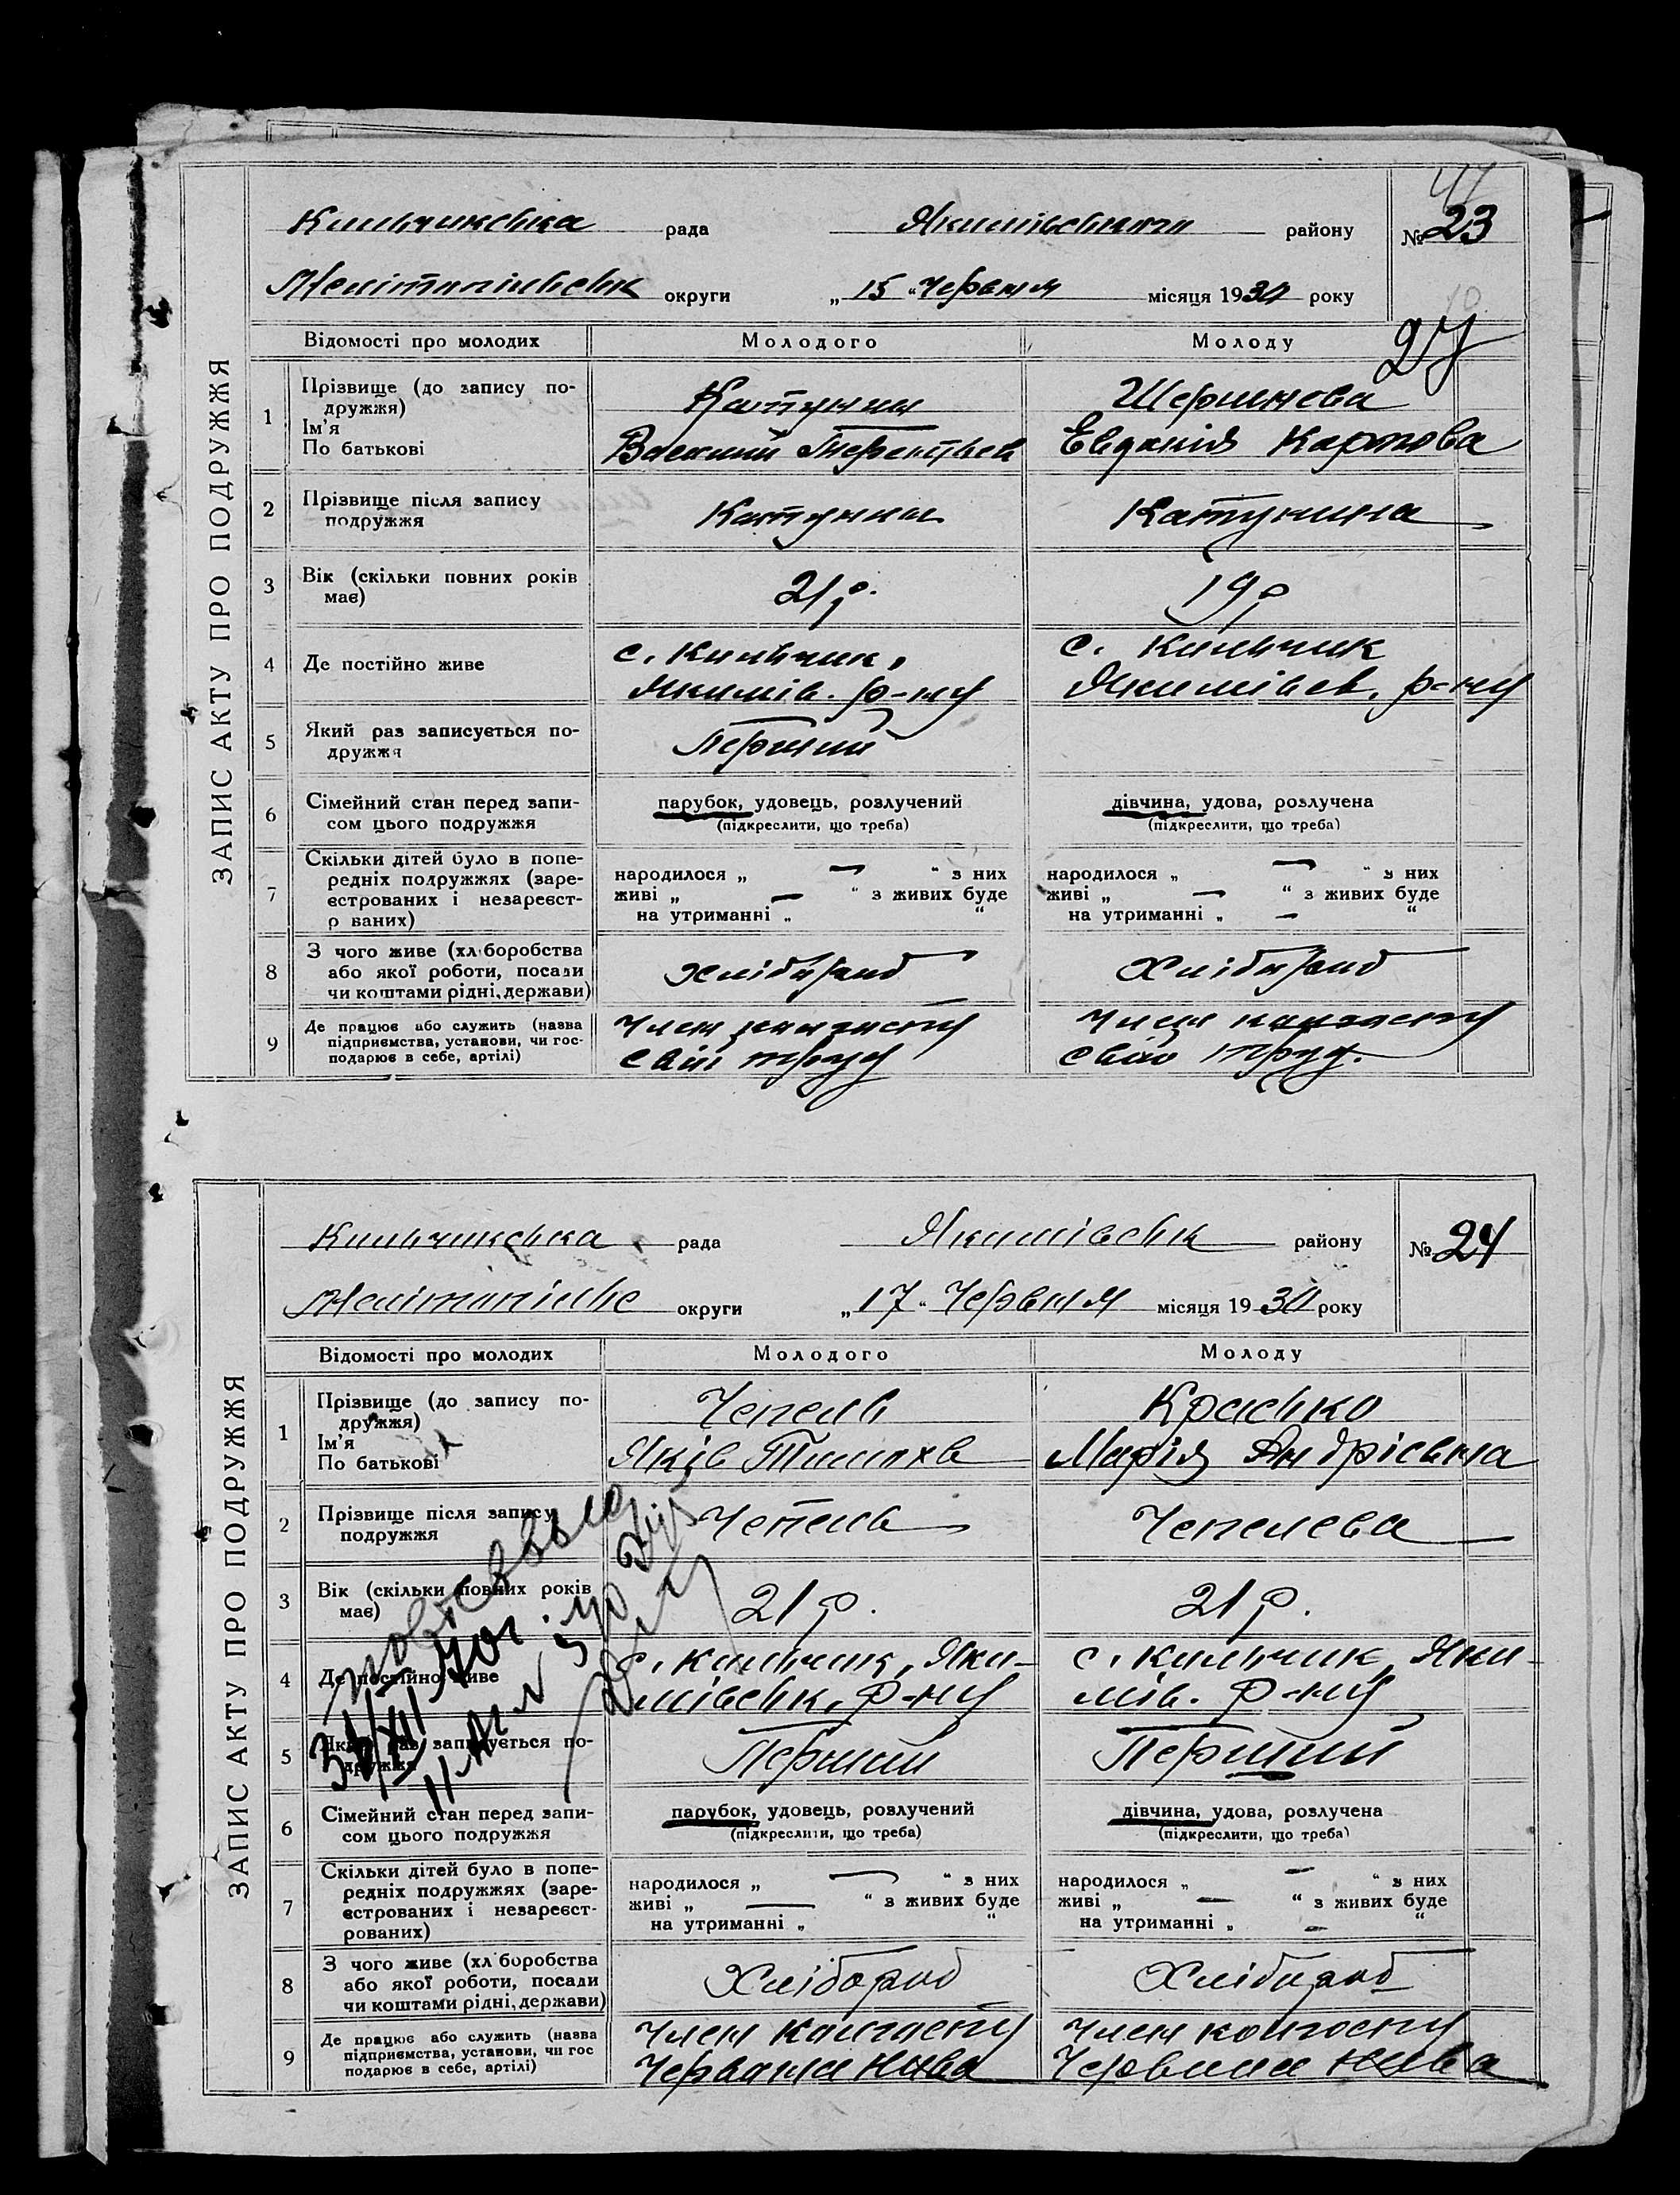 ЗАПИС АКТУ ПРО ПОДРУЖЖЯ
Кильчикська рада Якимівського району № 23
Мелітопільськ округи „15“ Червня місяця 1930 року
27
Відомості про молодих Молодого Молоду
1 Прізвище (до запису подружжя) Катунин Шершнева
Ім'я
По батькові Василий Терентьев Евдокія Карпова
2 Прізвище після запису подружжя Катунин Катунина
3 Вік (скільки повних років має) 21 р. 19 р
4 Де постійно живе с. Кильчик, с. Кильчик
Якимів. р-ну Якимівск. р-ну
5 Який раз записується подружжя Перший
6 Сімейний стан перед записом цього подружжя парубок, удовець, розлучений дівчина, удова, розлучена
(підкреслити, що треба) (підкреслити, що треба)
7 Скільки дітей було в попередніх подружжях (зареєстрованих і незареєстр ваних)
народилося „ — “ з них народилося „ — “ з них
живі „ — “ з живих буде живі „ — “ з живих буде
на утриманні „ “ на утриманні „ — “
8 З чого живе (хл боробства або якої роботи, посади чи коштами рідні, держави) Хлібороб Хлібороб
9 Де працює або служить (назва підприємства, установи, чи господарює в себе, артілі) Член колгоспу Член колгоспу
Свій труд Свій труд.
ЗАПИС АКТУ ПРО ПОДРУЖЖЯ
Кильчикська рада Якимівськ району № 24
округи „17“ Червня місяця 1930 року
Відомості про молодих Молодого Молоду
1 Прізвище (до запису подружжя) Чепель
Ім'я
По батькові Яків Тимохв Марія Андрієвна
2 Прізвище після запису подружжя Чепель Чепелева
3 Вік (скільки повних років має) 21 р. 21 р.
4 Де постійно живе с. Кильчик, Яки- с. Кильчик, Яки-
мівськ. р-ну мів. р-ну
5 Який раз записується подружжя Перший Перший
6 Сімейний стан перед записом цього подружжя парубок, удовець, розлучений дівчина, удова, розлучена
(підкреслити, що треба) (підкреслити, що треба)
7 Скільки дітей було в попередніх подружжях (зареєстрованих і незареєстрованих)
народилося „ — “ з них народилося „ — “ з них
живі „ — “ з живих буде живі „ — “ з живих буде
на утриманні „ “ на утриманні „ — “
8 З чого живе (хл боробства або якої роботи, посади чи коштами рідні, держави) Хлібороб Хлібороб
9 Де працює або служить (назва підприємства, установи, чи гос подарює в себе, артілі) Член колгоспу Член колгоспу
Червона Нива Червона Нива